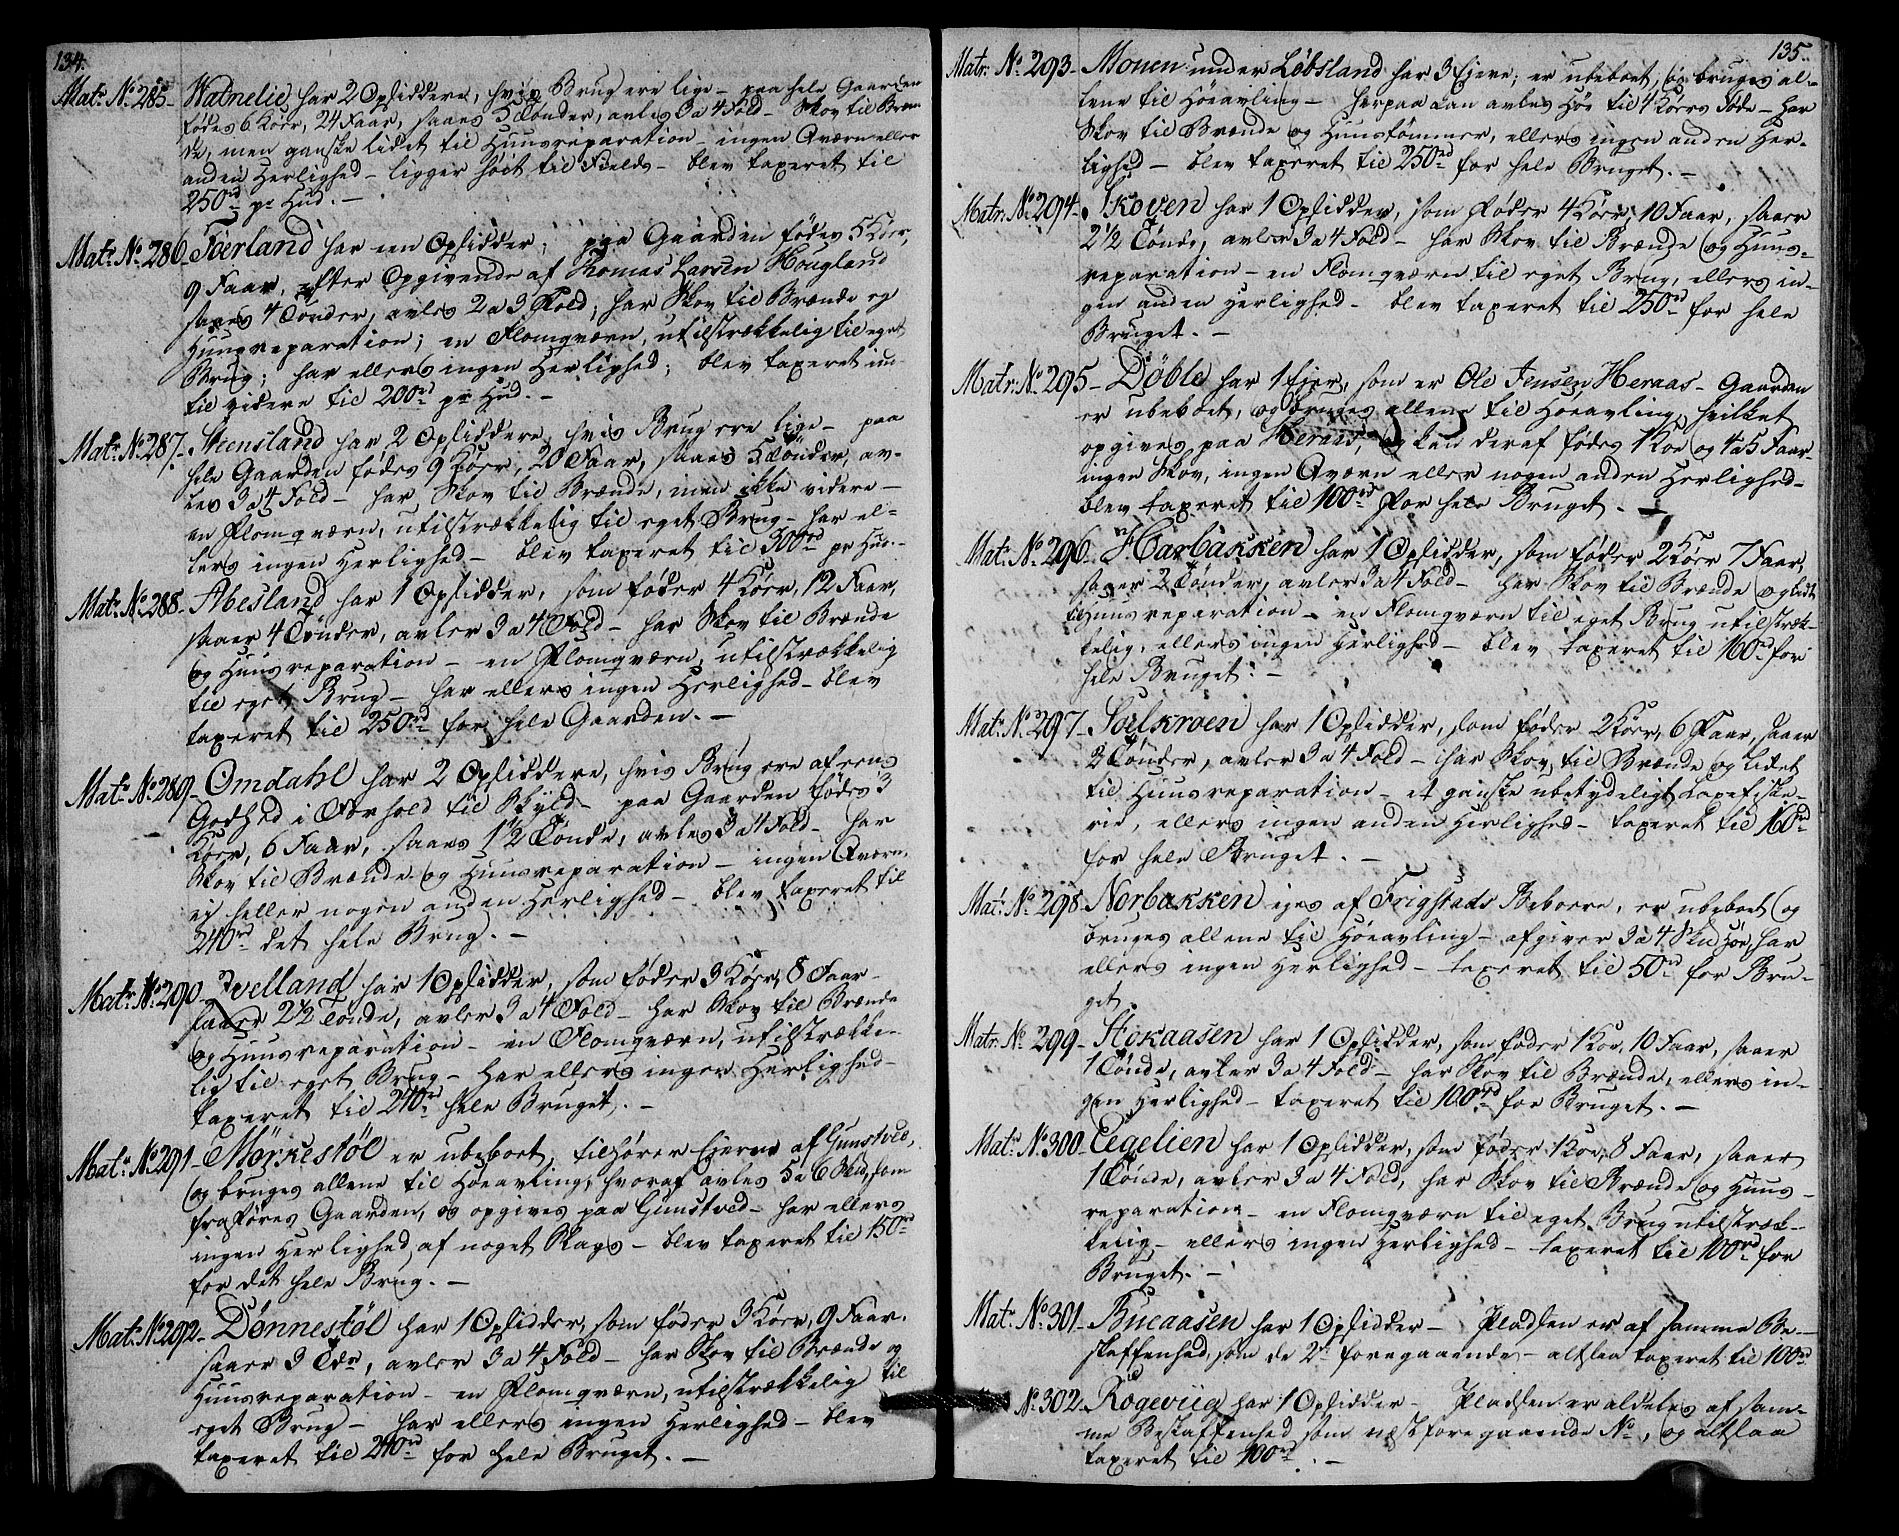 134.
Matr. No. 285 - Watnelie, har 2 Opsiddere, hvis Brug ere lige - paa hele Gaarden
fødes 6 Køer, 24 Faar, saaes 5 Tønder, avles 3 a 4 Fold - Skov til Bræn
de, men ganske lidet til Huusreparation - ingen Qværn eller
anden Herlighed - ligger høit til Fields - blev taxeret til
250rd pr Hud. -
Matr. No. 286 - Foerland har een Opsidder; paa Gaarden fødes 5 Køer,
9 Faar, efter Opgivende af Thomas Larsen Hougland
saaes 4 Tønder, avles 2 a 3 Fold; har Skov til Brænde og
Huusreparation; en Flomqværn, utilstrækkelig til eget
Brug; har ellers ingen Herlighed; blev taxeret ind-
til videre til 200rd pr Hud. -
Matr. No. 287. - Steensland har 2 Opsiddere, hvis Brug ere lige - paa
hele Gaarden fødes 9 Køer, 20 Faar, saaes 5 Tønder, av-
les 3 a 4 Fold - har Skov til Brænde, men ikke videre -
en Flomqværn, utilstrækkelig til eget Brug - har el-
lers ingen Herlighed - blev taxeret til 300rd pr Hud. -
Matr. No. 288. - Abesland har 1 Opsidder, som føder 4 Køer, 12 Faar,
saaer 4 Tønder, avler 3 a 4 Fold - har Skov til Brænde
og Huusreparation - en Flomqværn, utilstrækkelig
til eget Brug - har ellers ingen Herlighed - blev
taxeret til 250rd for hele Gaarden. -
Matr. No. 289 - Omdahl har 2 Opsiddere, hvis Brug ere af eens
Godhed i Forhold til Skyld - paa Gaarden fødes 3
Køer, 6 Faar, saaes 1 1/2 Tønde, avles 3 a 4 Fold - har
Skov til Brænde og Huusreparation - ingen Qværn,
ej heller nogen anden Herlighed - blev taxeret til
240rd det hele Brug. -
Matr. No. 290 - Ivelland har 1 Opsidder, som føder 3 Køer, 8 Faar -
saaer 2 1/2 Tønde, avler 3 a 4 Fold - har Skov til Brænde
og Huusreparation - en Flomqværn, utilstrække-
lig til eget Brug - har ellers ingen Herlighed -
taxeret til 240rd hele Bruget. -
Matr. No. 291 - Mørkestøl er ubeboet, tilhører Ejerne af Gunstved,
og bruges allene til Høeavling, hvoraf avles 5 a 6 Skd, som
fraføres Gaarden, og opgives paa Gunstved - har ellers
ingen Herlighed af noget Slags - blev taxeret til 150rd
for det hele Brug. -
Matr. No. 292 - Dønnestøl har 1 Opsidder, som føder 3 Køer, 9 Faar.
saaer 3 Tdr, avler 3 a 4 Fold - har Skov til Brænde og
Huusreparation - en Flomqværn, utilstrækkelig til
eget Brug - har ellers ingen Herlighed - blev
taxeret til 240rd for hele Bruget. -
135.
Matr. No. 293 - Monen under Løbsland har 3 Ejere; er ubeboet, og bruges al-
lene til Høeavling - herpaa kan avles Høe til 4 Køers Føde - har
Skov til Brænde og Huustømmer, ellers ingen anden Her-
lighed - blev taxeret til 250rd for hele Bruget. -
Matr. No. 294 - Skoven har 1 Opsidder, som føder 4 Køer, 10 Faar, saaer
2 1/2 Tønde, avler 3 a 4 Fold - har Skov til Brænde og Huus-
reparation - en Flomqværn til eget Brug, ellers in-
gen anden Herlighed - blev taxeret til 250rd for hele
Bruget. -
Matr. No. 295 - Døble har 1 Ejer, som er Ole Jensen Heraas - Gaarden
er ubeboet, og bruges allene til Høeavling, hvilket
opgives paa Heraas, og kan deraf fødes 1 Koe og 4 a 5 Faar -
ingen Skov, ingen Qværn eller nogen anden Herlighed -
blev taxeret til 100rd for hele Bruget. -
Matr. No. 296 - Harbakken har 1 Opsidder, som føder 2 Køer 7 Faar,
saaer 2 Tønder, avler 3 a 4 Fold - har Skov til Brænde og lidt
til Huusreparation - en Flomqværn til eget Brug utilstræk-
kelig, ellers ingen Herlighed - blev taxeret til 160rd for
hele Bruget. -
Matr. No. 297 - Soelkroen har 1 Opsidder, som føder 2 Køer, 6 Faar, saaer
2 Tønder, avler 3 a 4 Fold - har Skov til Brænde og lidet
til Huusreparation - et ganske ubetydeligt Laxefiske-
rie, ellers ingen anden Herlighed - taxeret til 160rd
for hele Bruget. -
Matr. No. 298 Norbakken ejes af Frigstads Beboere, er ubeboet og
bruges allene til Høeavling - afgiver 3 a 4 Skd Høe, har
ellers ingen Herlighed - taxeret til 50rd for Bru-
get.
Matr. No. 299 - Hokaasen har 1 Opsidder, som føder 1 Koe, 10 Faar, saaer
1 Tønde, avler 3 a 4 Fold - har Skov til Brænde, ellers in-
gen Herlighed - taxeret til 100rd for Bruget. -
Matr. No. 300 - Egelien har 1 Opsidder, som føder 1 Koe, 8 Faar, saaer
1 Tønde, avler 3 a 4 Fold, har Skov til Brænde og Huus-
reparation - en Flomqværn til eget Brug utilstræk-
kelig - ellers ingen Herlighed - taxeret til 100rd for
Bruget. -
Matr. No. 301 - Bueaasen har 1 Opsidder - Pladsen er af samme Be-
skaffenhed, som de 2de foregaaende - altsaa taxeret til 100rd
No. 302 - Røgeviig har 1 Opsidder - Pladsen er aldeles af sam-
me Beskaffenhed som næstforegaaende No, og altsaa
taxeret til 100rd. -